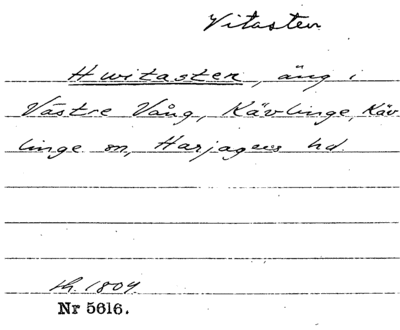 Vitasten
Hwitasten, äng i
Västre Vång, Kävlinge, Käv
linge sn, Harjagers hd.
sk. 1804
Nr 5616.